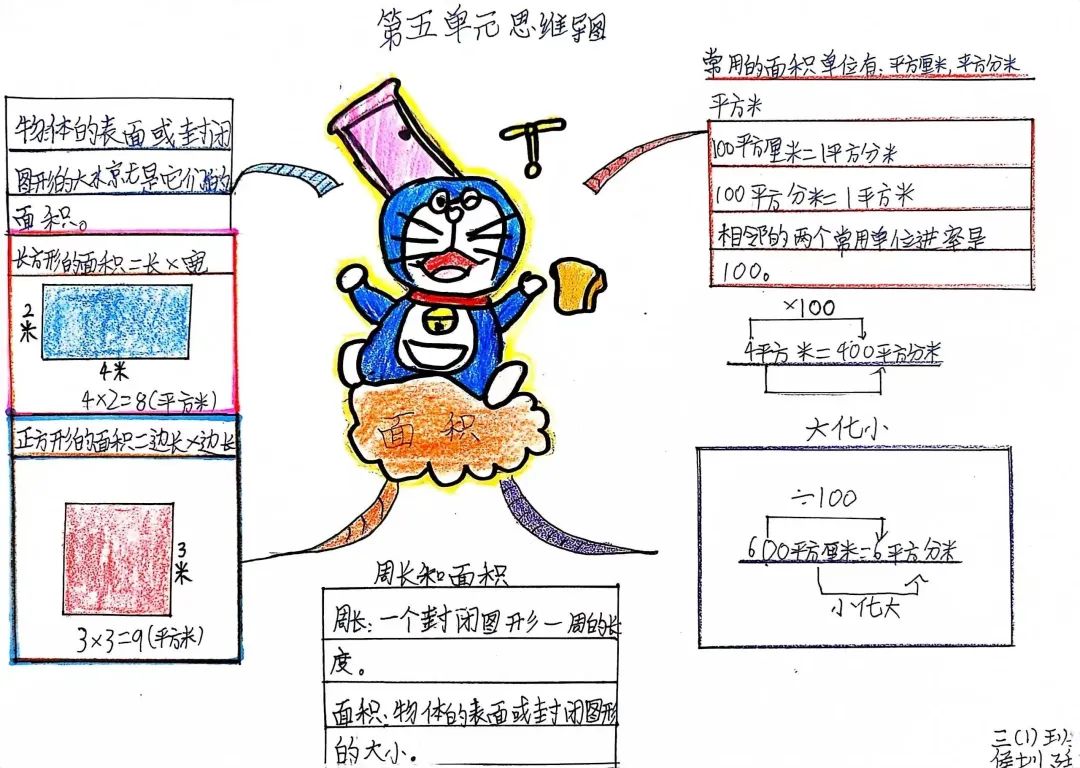 第五单元思维导图
物体的表面或封闭
图形的大小就是它们的
面积。
长方形的面积=长×宽
2米
4米
4×2=8(平方米)
正方形的面积=边长×边长
3米
3×3=9(平方米)
面积
周长和面积
周长:一个封闭图形一周的长
度。
面积:物体的表面或封闭图形
的大小。
常用的面积单位有:平方厘米,平方分米
平方米
100平方厘米=1平方分米
100平方分米=1平方米
相邻的两个常用单位进率是
100。
×100
4平方米=400平方分米
大化小
÷100
600平方厘米=6平方分米
小化大
三(1)班